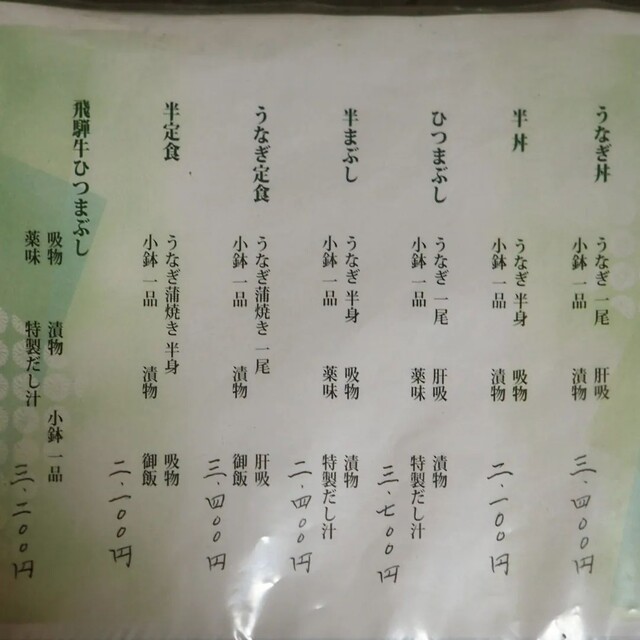 うなぎ丼
うなぎ 一尾 肝吸
小鉢 一品 漬物
三.四〇〇円
半丼
うなぎ 半身 吸物
小鉢 一品 漬物
二.一〇〇円
ひつまぶし
うなぎ 一尾 肝吸 漬物
小鉢 一品 薬味 特製だし汁
三.七〇〇円
半まぶし
うなぎ 半身 吸物 漬物
小鉢 一品 薬味 特製だし汁
二.四〇〇円
うなぎ定食
うなぎ蒲焼き 一尾 肝吸
小鉢 一品 漬物 御飯
三.四〇〇円
半定食
うなぎ蒲焼き 半身 吸物
小鉢 一品 漬物 御飯
二.一〇〇円
飛騨牛ひつまぶし
吸物 漬物 小鉢 一品
薬味 特製だし汁
三.二〇〇円